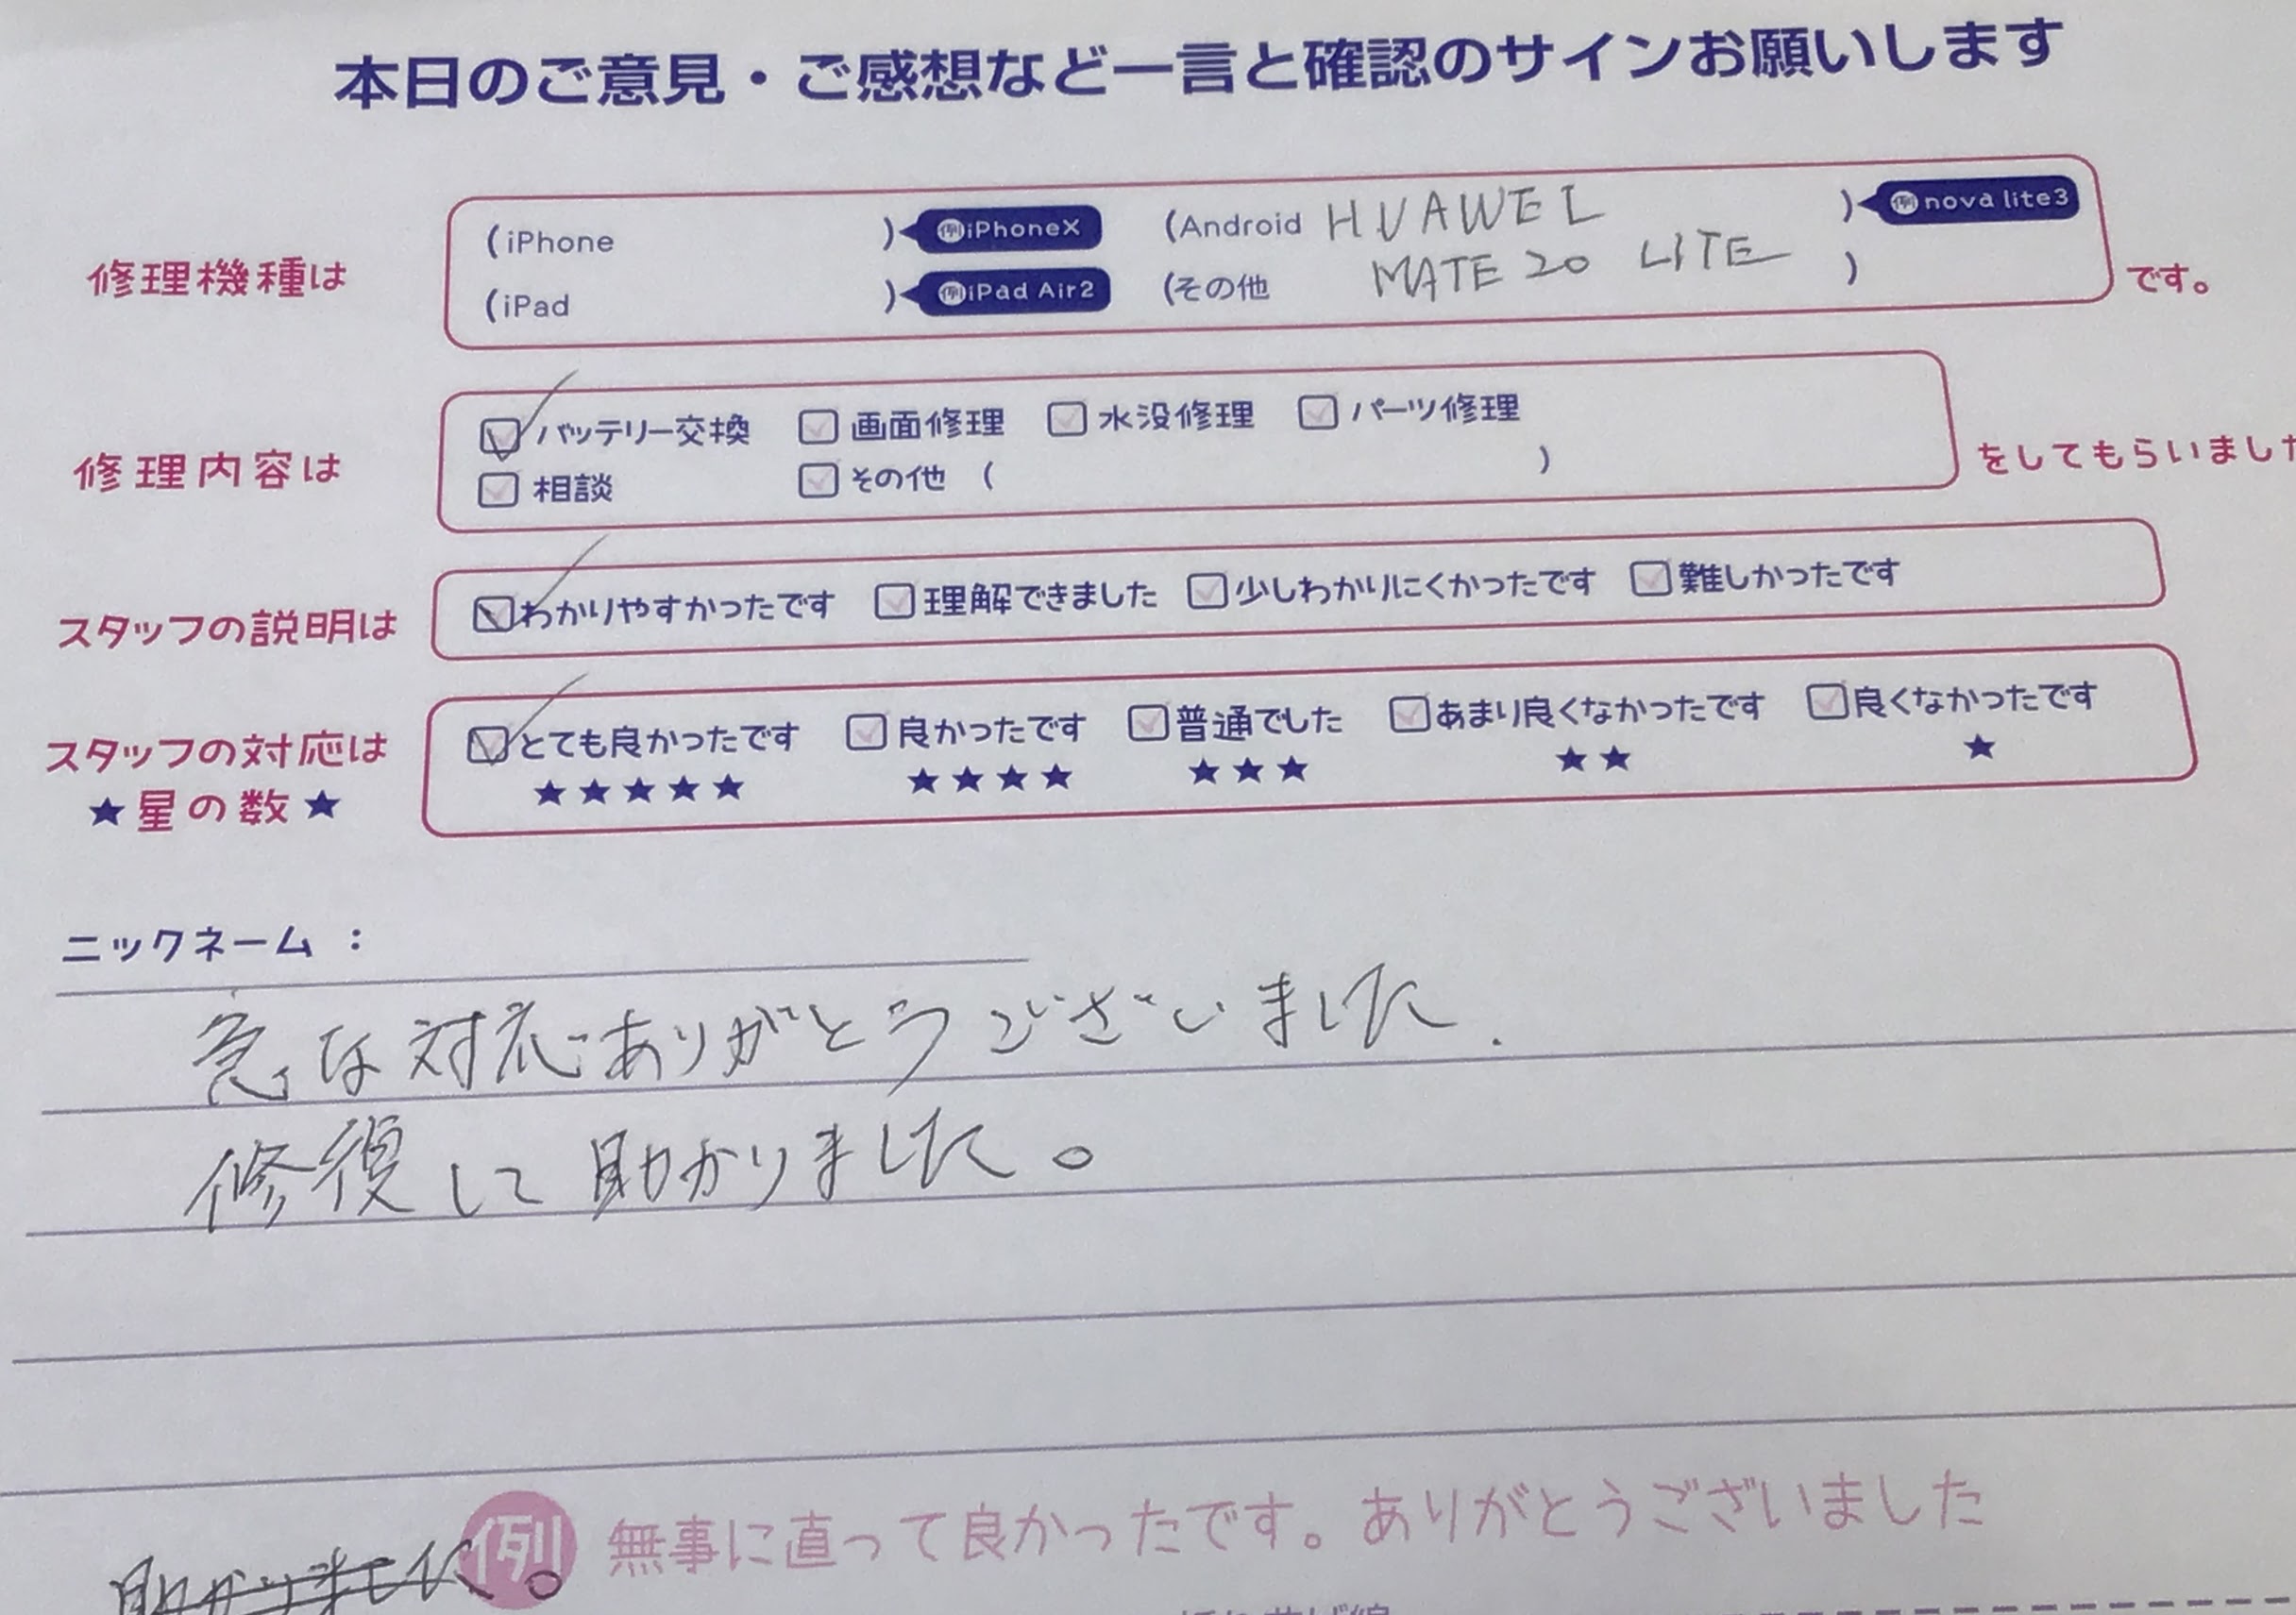 本日のご意見・ご感想など一言と確認のサインお願いします
修理機種は
(iPhone ) 例iPhoneX (Android HUAWEI ) 例nova lite3
(iPad ) 例iPad Air2 (その他 MATE 20 LITE ) です。
修理内容は
バッテリー交換 画面修理 水没修理 パーツ修理
相談 その他 ( ) をしてもらいました
スタッフの説明は
わかりやすかったです 理解できました 少しわかりにくかったです 難しかったです
スタッフの対応は
★星の数★
とても良かったです 良かったです 普通でした あまり良くなかったです 良くなかったです
★★★★★ ★★★★ ★★★ ★★ ★
ニックネーム：
急な対応ありがとうございました.
修復して助かりました。
例 無事に直って良かったです。ありがとうございました
助かりました。